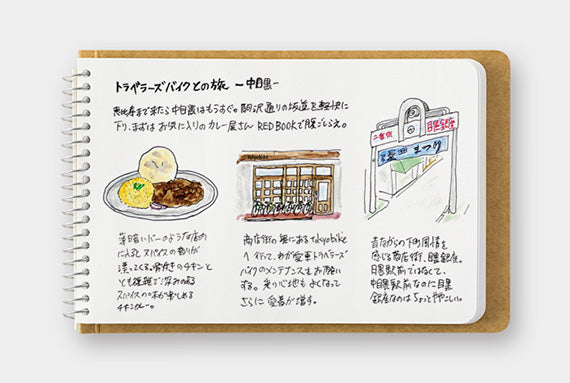 トラベラーズバイクとの旅 －中目黒－
恵比寿まで来たら中目黒はもうすぐ。駒沢通りの坂道を軽快に
下り、まずはお気に入りのカレー屋さん RED BOOKで腹ごしらえ。
tokyobike
二番街 目黒銀座
まつり
薄暗いバーのような店内
に入るとスパイスの香りが
漂ってくる。骨付きのチキンと
とも複雑で深みのある
スパイスの味が楽しめる
チキンカレー。
商店街の奥にあるtokyobike
へ行って、わが愛車トラベラーズ
バイクのメンテナンスをお願い
する。走り心地もよくなって
さらに愛着が増す。
昔ながらの下町風情を
感じる商店街、目黒銀座。
目黒駅前ではなくて、
中目黒駅前なのに目黒
銀座なのはちょっとややこしい。